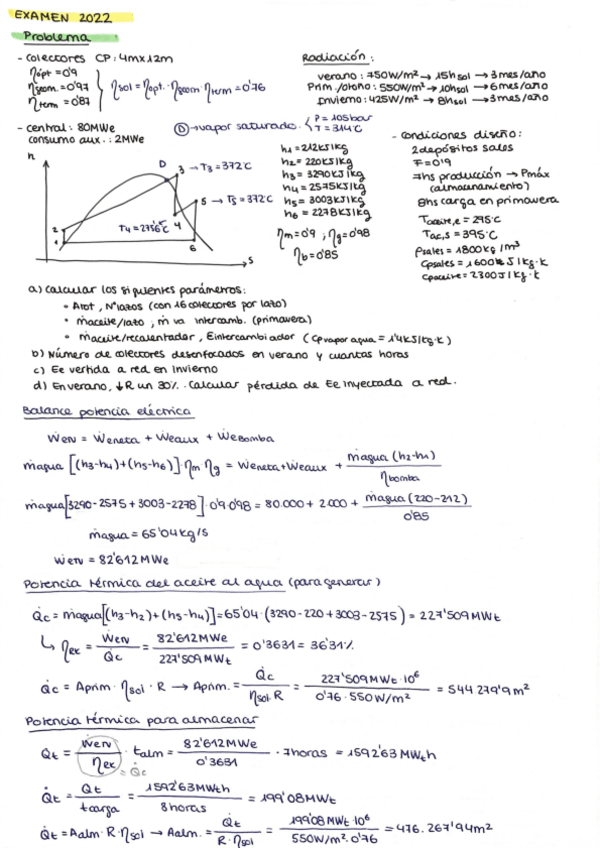 EXAMEN 2022
Problema
- Colectores CP: 4mx12m
ηópt = 0'9
ηgeom = 0'97
ηterm = 0'87
ηsol = ηopt. · ηgeom · ηterm = 0'76
Radiación:
verano: 750W/m² → 15h sol → 3mes/año
Prim./otoño: 550W/m² → 10h sol → 6mes/año
Invierno: 425W/m² → 8h sol → 3mes/año
- central: 80MWe
consumo aux.: 2MWe
D → vapor saturado. P = 105bar
T = 314ºC
h
D
3 → T3 = 372ºC
5 → T5 = 372ºC
T4 = 275'6ºC
4
2
1
6
s
h1 = 212kJ/kg
h2 = 220kJ/kg
h3 = 3290kJ/kg
h4 = 2575kJ/kg
h5 = 3003kJ/kg
h6 = 2278kJ/kg
ηm = 0'9 ; ηg = 0'98
ηb = 0'85
- Condiciones diseño:
2 depósitos sales
F = 0'9
7hs producción → Pmáx
(almacenamiento)
8hs carga en primavera
Taceite,e = 295ºC
Tac,s = 395ºC
ρsales = 1800kg/m³
Cpsales = 1600 J/kg·K
Cpaceite = 2300 J/kg·K
a) Calcular los siguientes parámetros:
• Atot, Nºlazos (con 16 colectores por lazo)
• ṁaceite/lazo, ṁ va intercamb. (primavera)
• ṁaceite/recalentador, Eintercambiador (Cpvapor agua = 1'4kJ/kg·K)
b) Número de colectores desenfocados en verano y cuantas horas
c) Ee vertida a red en Invierno
d) En verano, ↓R un 30%. Calcular pérdida de Ee inyectada a red.
Balance potencia eléctrica
Ẇen = Ẇeneta + Ẇeaux + Ẇebomba
ṁagua [(h3-h4)+(h5-h6)] · ηm ηg = Ẇeneta + Ẇeaux + ṁagua (h2-h1) / ηbomba
ṁagua [3290-2575+3003-2278] · 0'9 · 0'98 = 80.000 + 2.000 + ṁagua (220-212) / 0'85
ṁagua = 65'04kg/s
Ẇen = 82'612MWe
Potencia térmica del aceite al agua (para generar)
Q̇c = ṁagua [(h3-h2)+(h5-h4)] = 65'04 · (3290-220+3003-2575) = 227'509MWt
↳ ηex = Ẇen / Q̇c = 82'612MWe / 227'509MWt = 0'3631 = 36'31%
Q̇c = Aprim · ηsol · R → Aprim. = Q̇c / ηsol·R = 227'509MWt·10⁶ / 0'76·550W/m² = 544.279'9m²
Potencia térmica para almacenar
Qt = Ẇen / ηex · talm = 82'612MWe / 0'3631 · 7horas = 1592'63 MWth
= Q̇c
Q̇t = Qt / tcarga = 1592'63MWth / 8horas = 199'08MWt
Q̇t = Aalm·R·ηsol → Aalm. = Q̇t / R·ηsol = 199'08MWt·10⁶ / 550W/m²·0'76 = 476.267'94m²